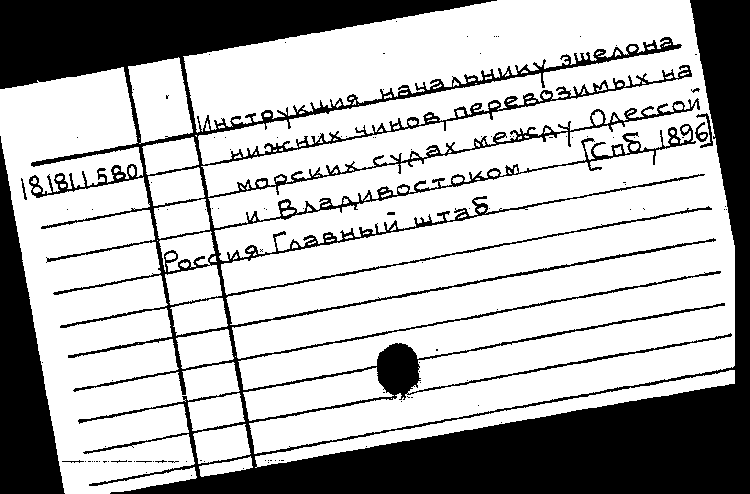 Инструкция начальнику эшелона
нижних чинов, перевозимых на
морских судах между Одессой
18.181.1.580
и Владивостоком. [Спб., 1896]
Россия. Главный штаб.